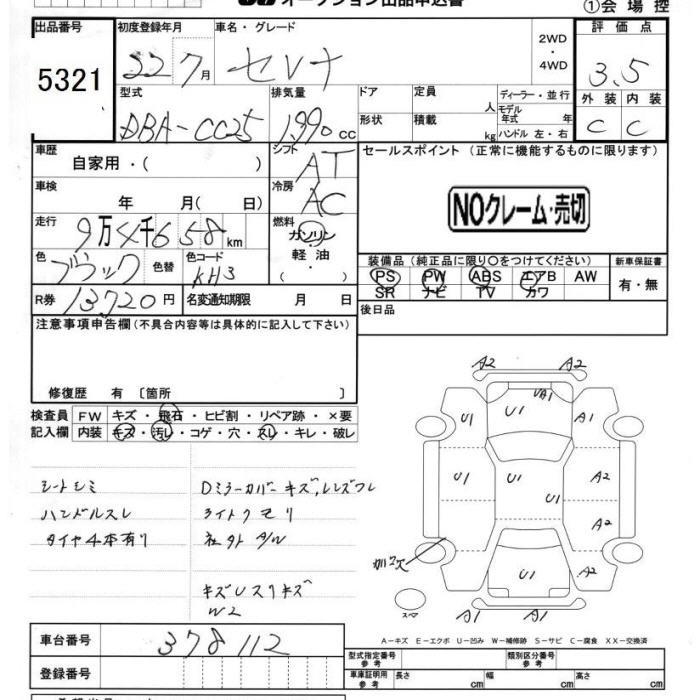 オークション出品申込書
①会場控
出品番号 初度登録年月 車名・グレード 2WD・4WD 評価点
5321 22 7月 セレナ 3.5
型式 排気量 ドア 定員 人 ディーラー・並行 外装 内装
DBA-CC25 1990cc 形状 積載 kg モデル年式 年 ハンドル 左・右 C C
車歴 自家用・( ) シフト AT セールスポイント (正常に機能するものに限ります)
車検 年 月( 日) 冷房 AC
NOクレーム・売切
走行 9万4千658km 燃料 ガソリン・軽油・
装備品(純正品に限り○をつけてください) 新車保証書
色 ブラック 色替 色コード KH3
PS PW ABS エアB AW 有・無
SR ナビ TV カワ
R券 13720円 名変通知期限 月 日 後日品
注意事項申告欄(不具合内容等は具体的に記入して下さい)
修復歴 有〔箇所 〕
検査員 FW キズ・飛石・ヒビ割・リペア跡・×要
記入欄 内装 キズ・汚レ・コゲ・穴・スレ・キレ・破レ
シートシミ Dミラーカバーキズ,レンズワレ
ハンドルスレ ライトクモリ
タイヤ4本有リ 社外AW
キズUスリキズ
W2
A2 A2
U1 U1 UA1 A1
U1 U1 A2
U1 A2
加ロ欠 U1 A2
スペア A1 A1
A-キズ E-エクボ U-凹み W-補修跡 S-サビ C-腐食 XX-交換済
車台番号 378112
登録番号
型式指定番号 参考 類別区分番号 参考
車庫証明用 参考 長さ cm 幅 cm 高さ cm